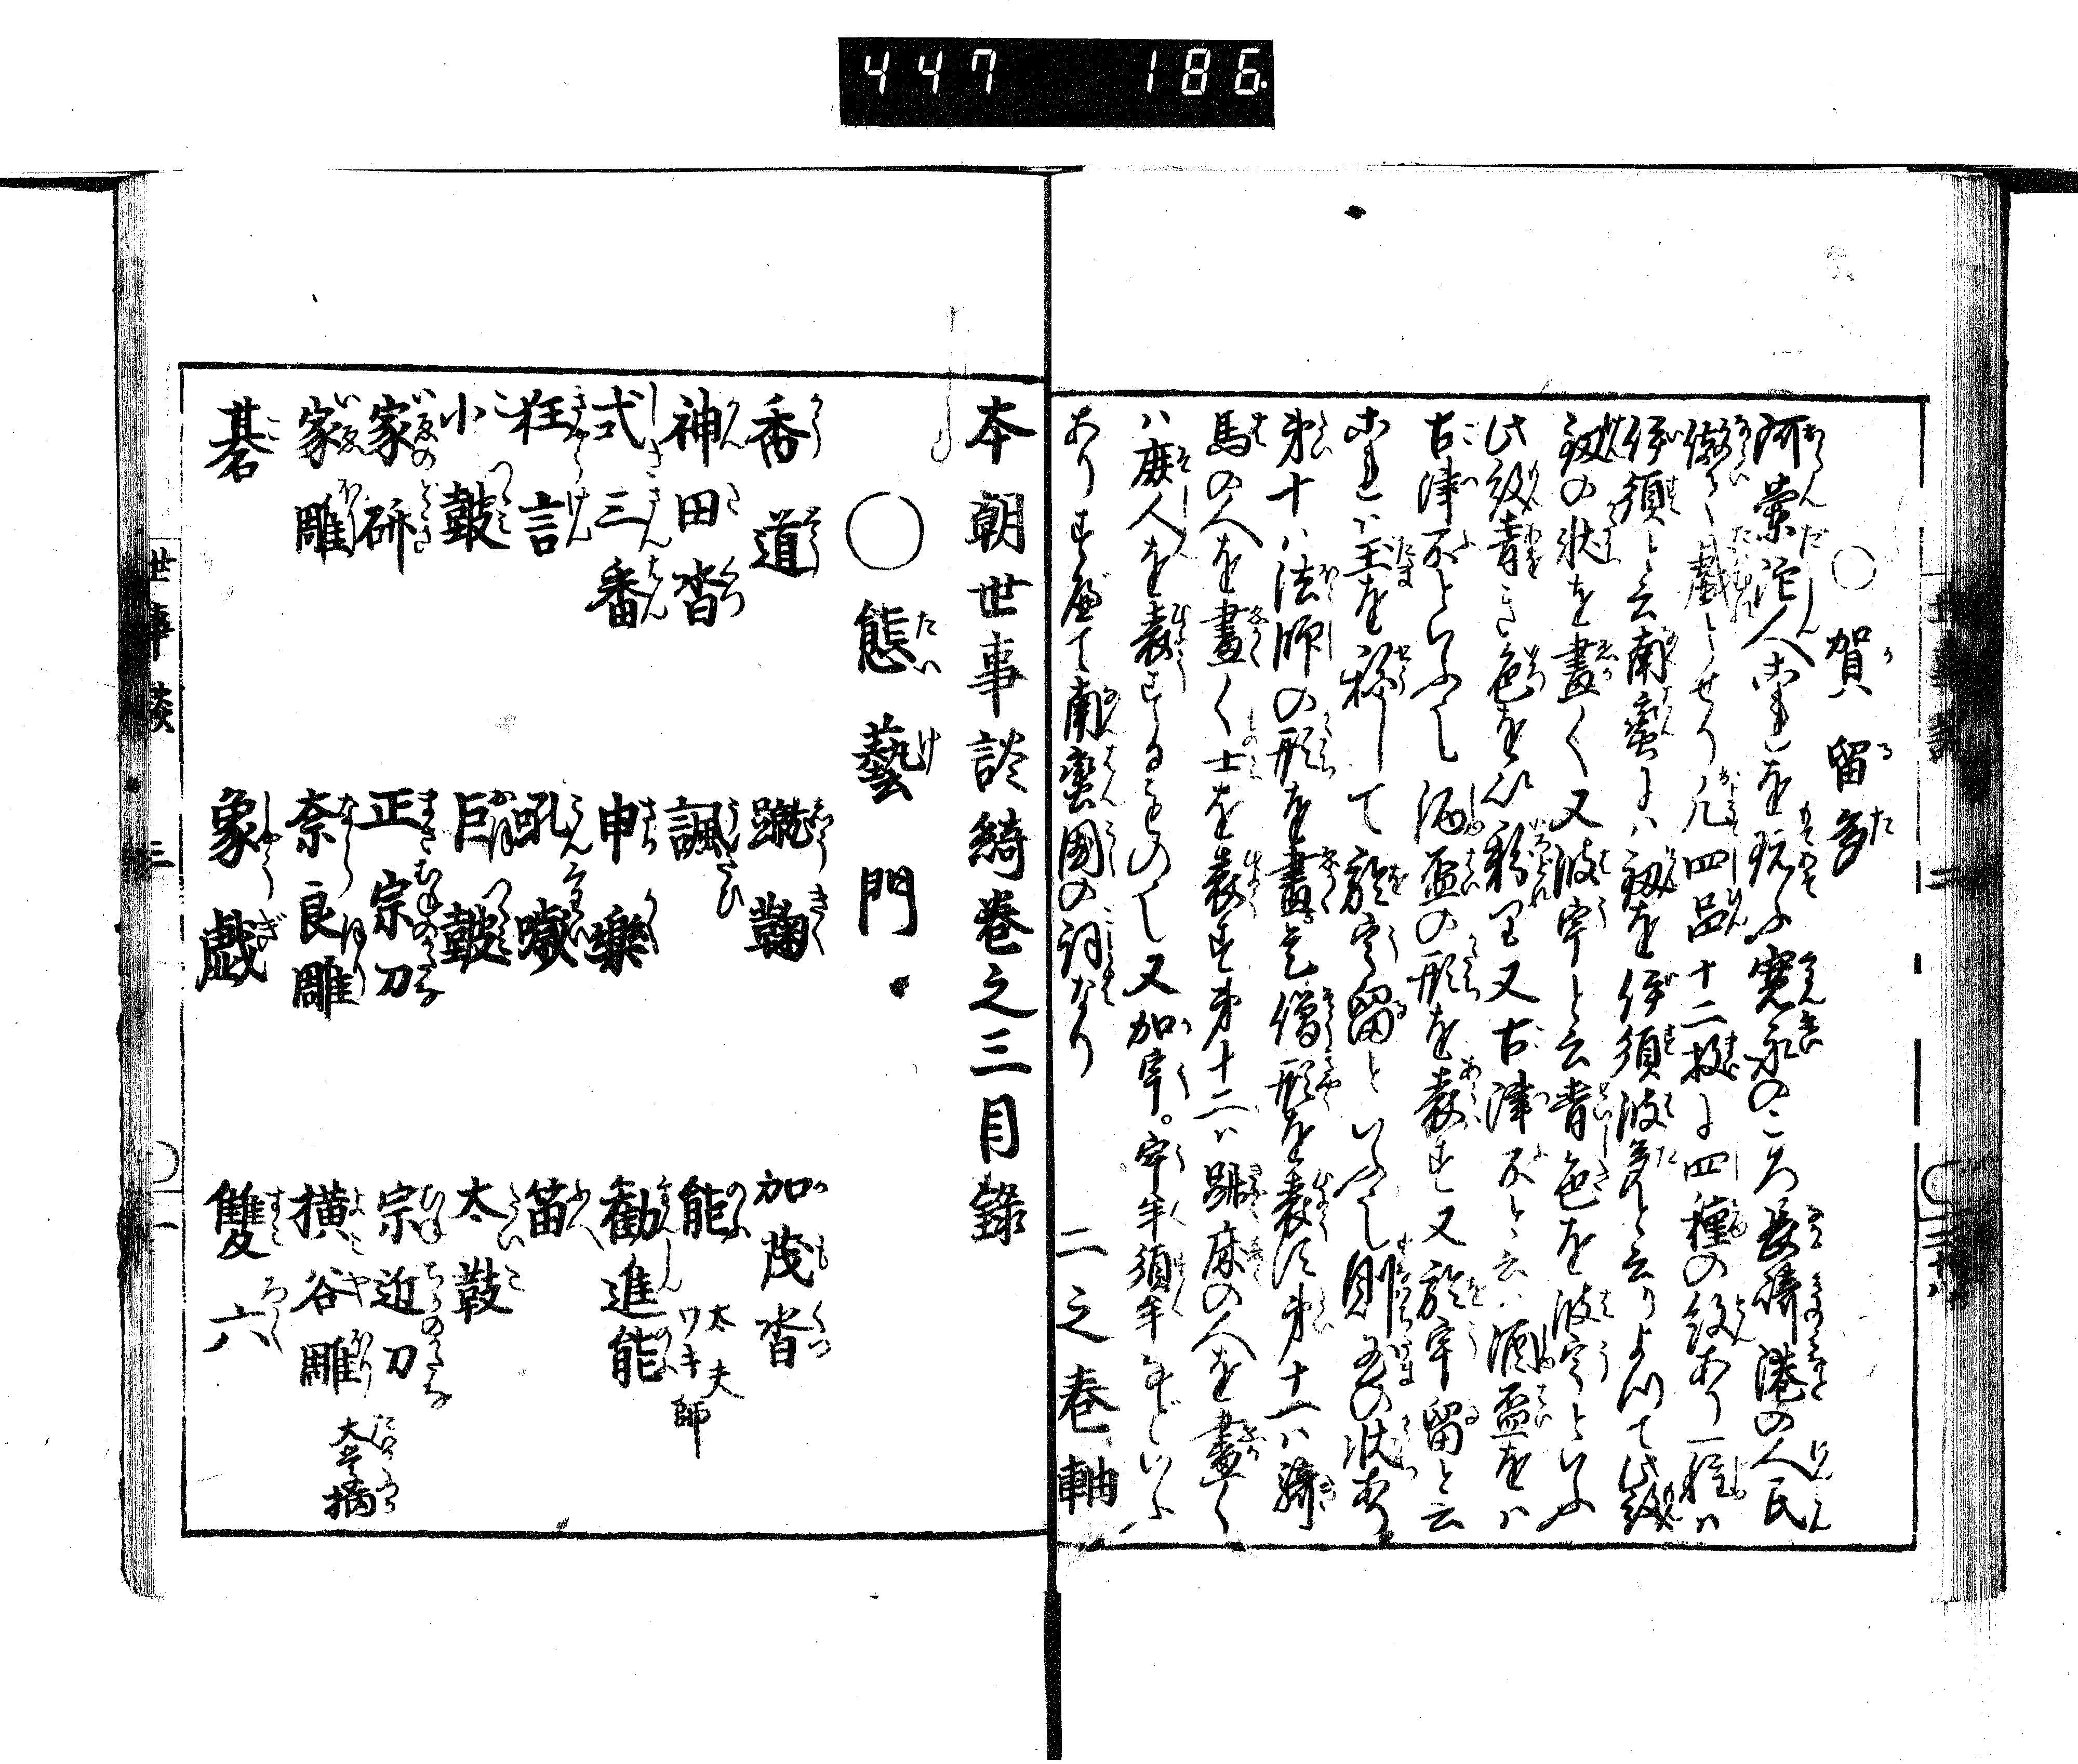 447 186
○賀留多
阿蘭陀人これを玩ふ寛永のころ長崎港の人民
倣て戯とせり凡四品十二枚に四種の紋あり一種ハ
伊須と云南蛮にハ剱を伊須波多と云りよつて此紋
剱の状を畫く又波宇と云青色を波宇といふ
此紋青き色を以彩里又古津不と云ハ酒盃をハ
古津不といふ也酒盃の形を表す又於宇留と云
これハ玉を称して於宇留といふ也則玉の状あり
第十ハ法師の形を畫是僧形を表す第十一ハ騎
馬の人を畫く士を表す第十二ハ踞床の人を畫く
ハ庶人を表するもの也又加宇。宇牟須牟などいふ
ありすへて南蛮國の詞なり
二之巻軸
本朝世事談綺巻之三目錄
○態藝門
香道 蹴鞠 加茂沓
神田沓 諷 能 太夫 ワキ師
式三番 申樂 勸進能
狂言 吼噦 笛
小鼓 巨鼓 太鼓
家研 正宗刀 宗近刀
家雕 奈良雕 横谷雕
碁 象戯 雙六
世事談 三 ○一